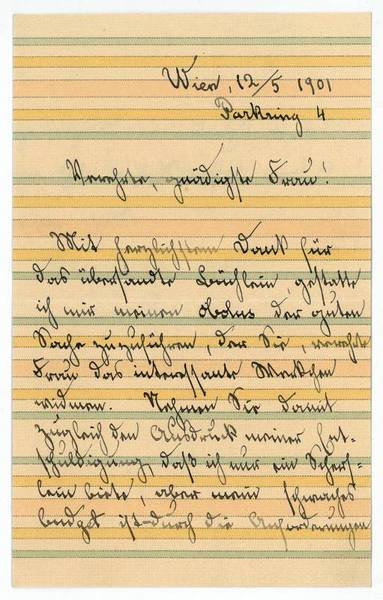 Wien, 12/5 1901
Parkring 4
Verehrte, gnädigste Frau!
Mit herzlichstem Dank für
das übersandte Büchlein, gestatte
ich mir meinen Obolus der guten
Sache zuzuführen, der Sie, verehrte
Frau das interessante Werkchen
widmen. Nehmen Sie damit
zugleich den Ausdruck meiner Ent-
schuldigung, daß ich nur ein Scherf-
lein biete, aber mein schwaches
budget ist durch die Anforderungen